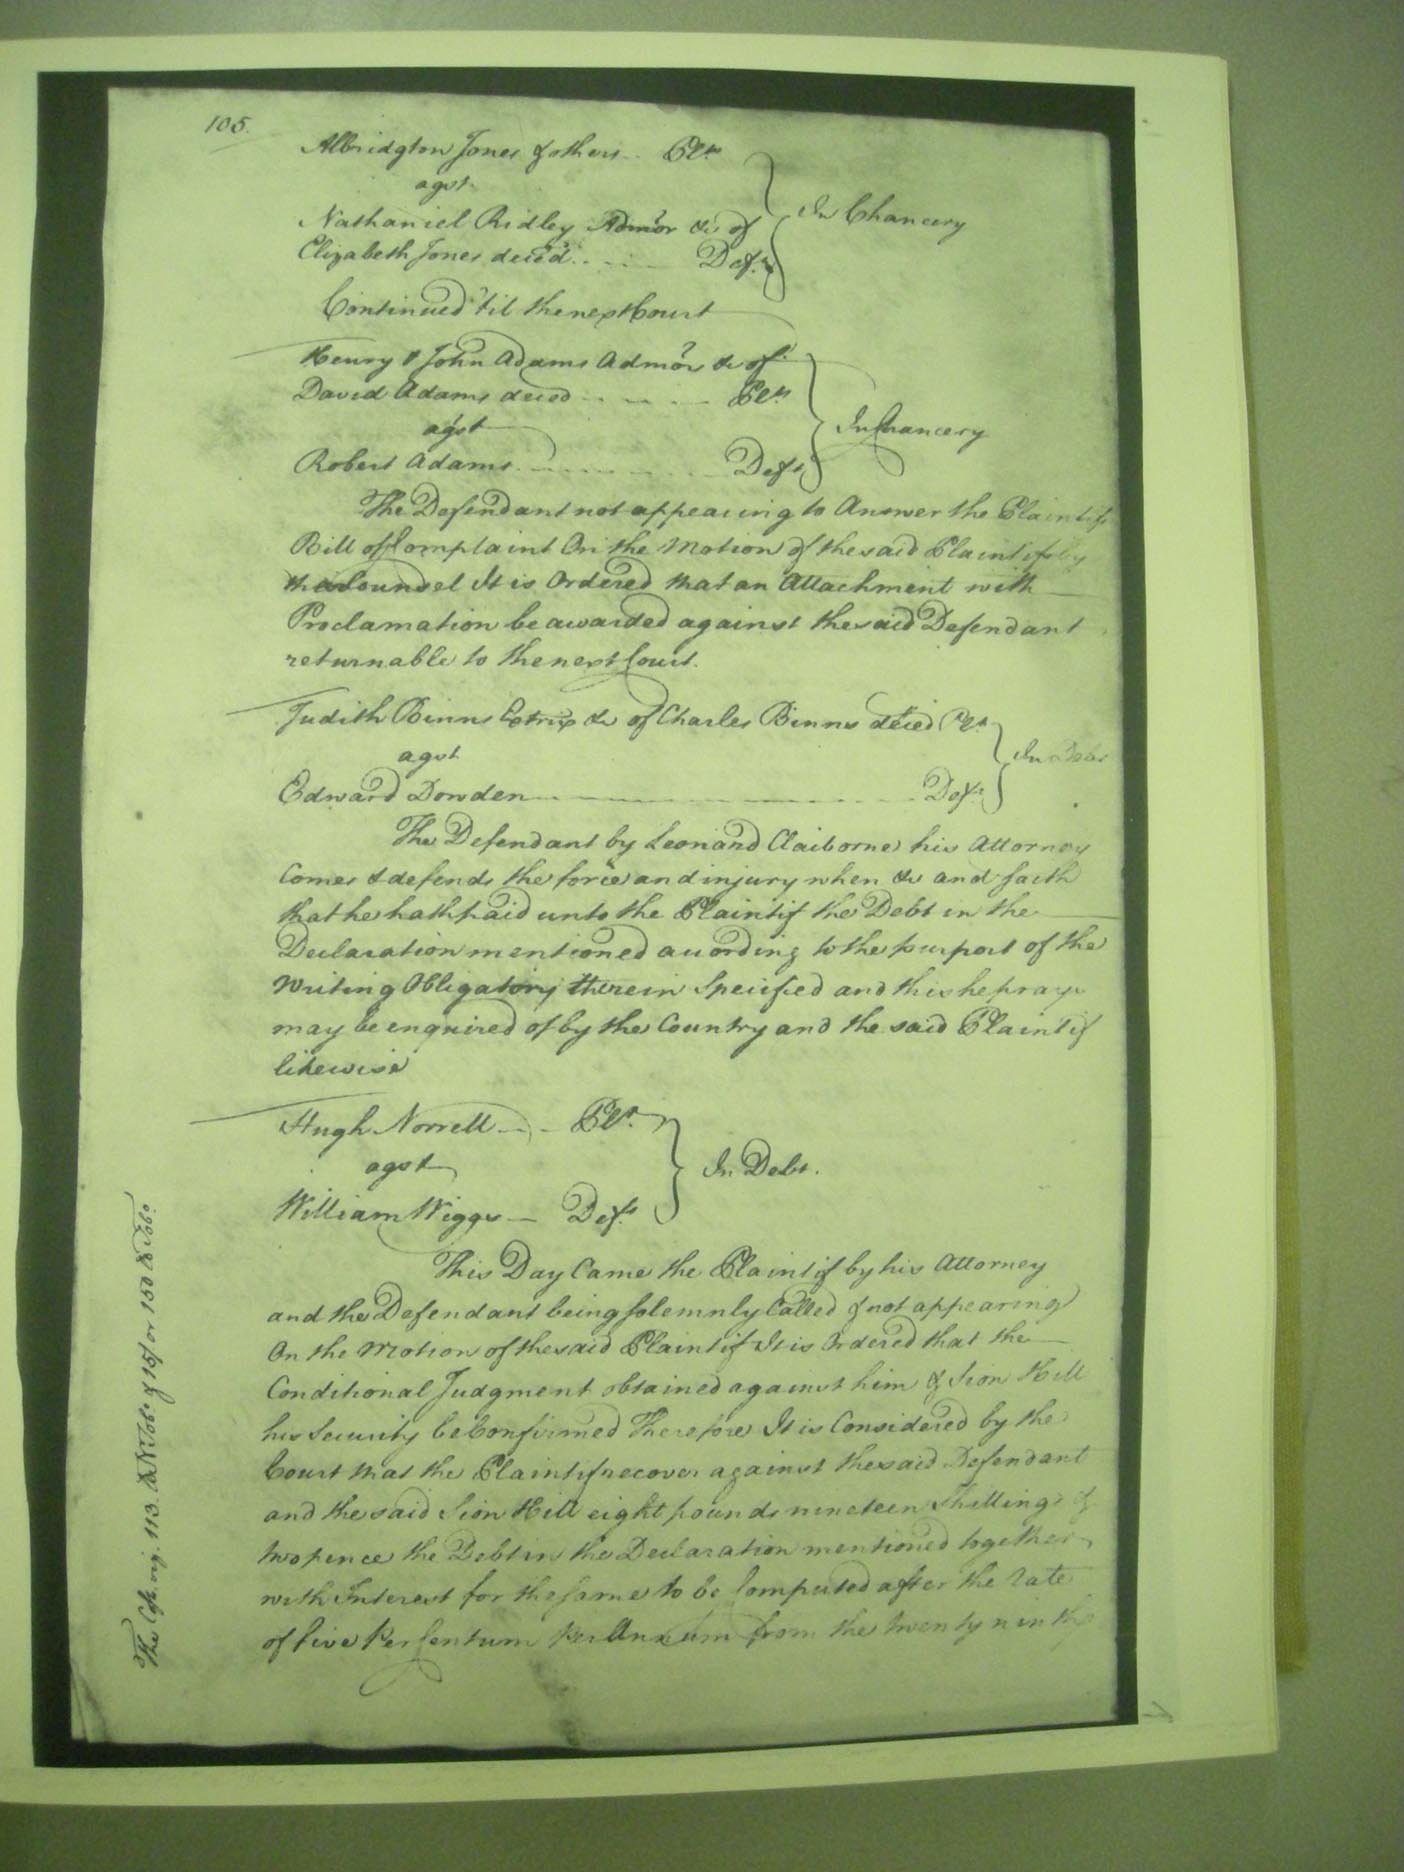 105.
Albridgton Jones & others Plts
agst
Nathaniel Ridley Admor &c of
Elizabeth Jones deced Deft
In Chancery
Continued 'til the next Court
Henry & John Adams Admors &c of
David Adams deced Plts
agst
Robert Adams Deft
In Chancery
The Defendant not appearing to Answer the Plaintifs
Bill of Complaint On the Motion of the said Plaintifs by
Counsel It is Ordered that an Attachment with
Proclamation be awarded against the said Defendant
returnable to the next Court.
Judith Binns Extrix &c of Charles Binns deced Plt
agst
Edward Dowden Deft
In Debt
The Defendant by Leonard Claiborne his Attorney
Comes & defends the force and injury when &c and saith
that he hath paid unto the Plaintif the Debt in the
Declaration mentioned according to the purport of the
Writing Obligatory therein Specified and this he prays
may be enquired of by the Country and the said Plaintif
likewise
Hugh Norrell Plt.
agst
William Wiggs Deft
In Debt.
This Day Came the Plaintif by his Attorney
and the Defendant being solemnly Called & not appearing
On the Motion of the said Plaintif It is Ordered that the
Conditional Judgment obtained against him & Sion Hill
his Security be Confirmed Therefore It is Considered by the
Court that the Plaintif recover against the said Defendant
and the said Sion Hill eight pounds nineteen Shillings &
twopence the Debt in the Declaration mentioned together
with Interest for the same to be Computed after the rate
of five Per Centum Per Annum from the twenty ninth
The Cts. viz. 113 Tobo & 15/ or 150 Tobo.